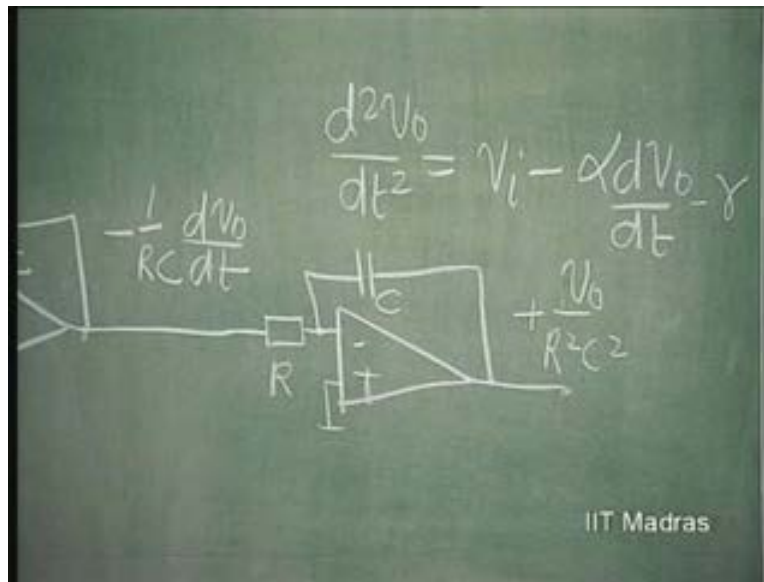 d²v₀/dt² = vᵢ - α dv₀/dt - γ
-1/RC dv₀/dt
C
+ v₀/R²C²
R
-
+
IIT Madras